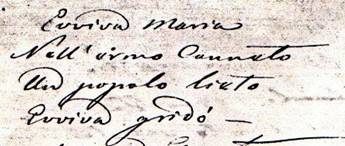 Evviva Maria
Nell'ermo Canneto
Un popolo lieto
Evviva gridò —